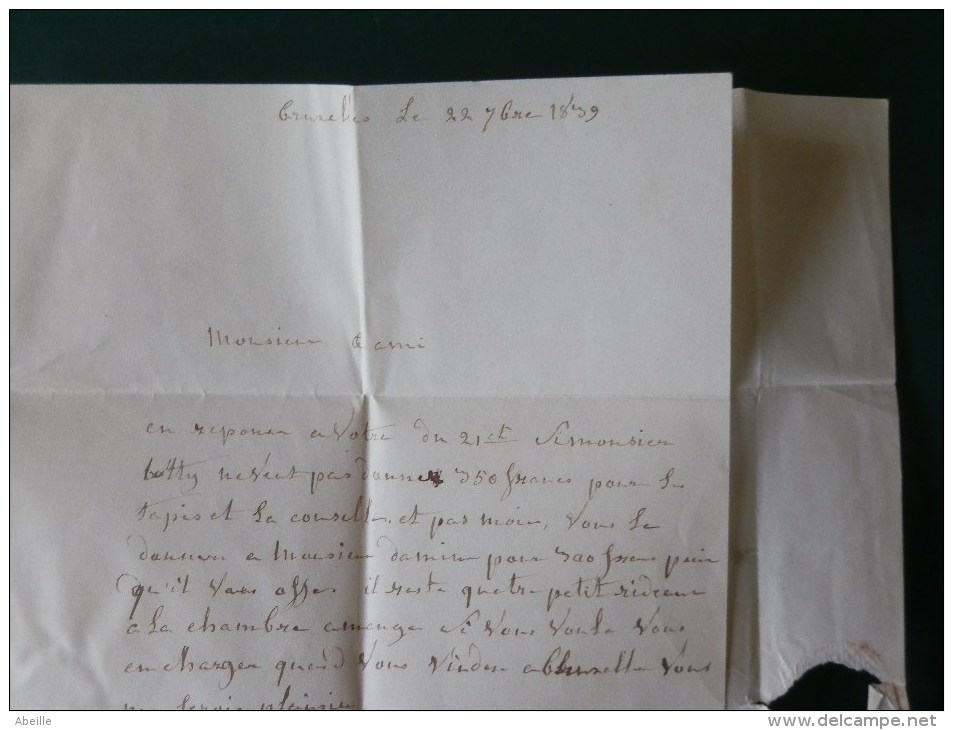 bruxelles Le 22 7bre 1839
Monsieur Cami
en reponse a Votre du 21 ct Si monsieur
ne Veut pas donner 350 francs pour le
tapis et La et pas moin, Vous Le
donner a Monsieur pour 300 prix
qu'il Vous offre il reste quatre petit rideau
a La chambre a mange Si Vous Voule Vous
en charger quand Vous Vinder a bruxelle Vous
me plaisir
Abeille
www.delcampe.net